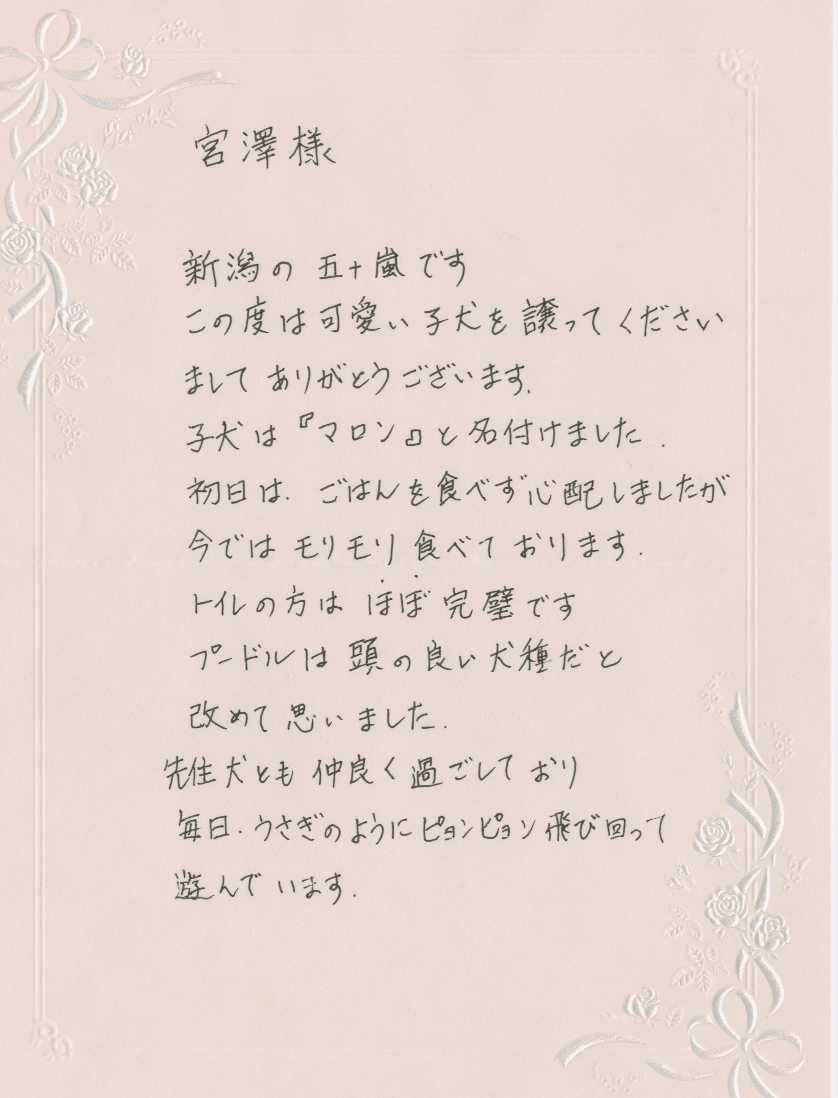 宮澤様
新潟の五十嵐です
この度は可愛い子犬を譲ってください
ましてありがとうございます.
子犬は『マロン』と名付けました.
初日は.ごはんを食べず心配しましたが
今ではモリモリ食べております.
トイレの方はほぼ完璧です
プードルは頭の良い犬種だと
改めて思いました.
先住犬とも仲良く過ごしており
毎日.うさぎのようにピョンピョン飛び回って
遊んでいます.